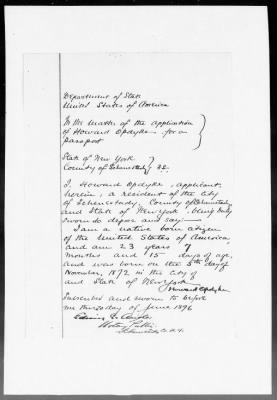 Department of State
United States of America
In the Matter of the Application
of Howard Opdyke for a
passport
State of New York
County of Schenectady SS.
I, Howard Opdyke, applicant
herein, a resident of the City
of Schenectady, County of Schenectady
and State of New York, being duly
sworn do depose and say:—
I am a native born citizen
of the United States of America,
and am 23 years 7
months and 15 days of age,
and was born on the 5th day of
November, 1872 in the City of
and State of New York
Howard Opdyke
Subscribed and sworn to before
me this 20 day of June 1896
Notary Public
Schenectady Co. N.Y.